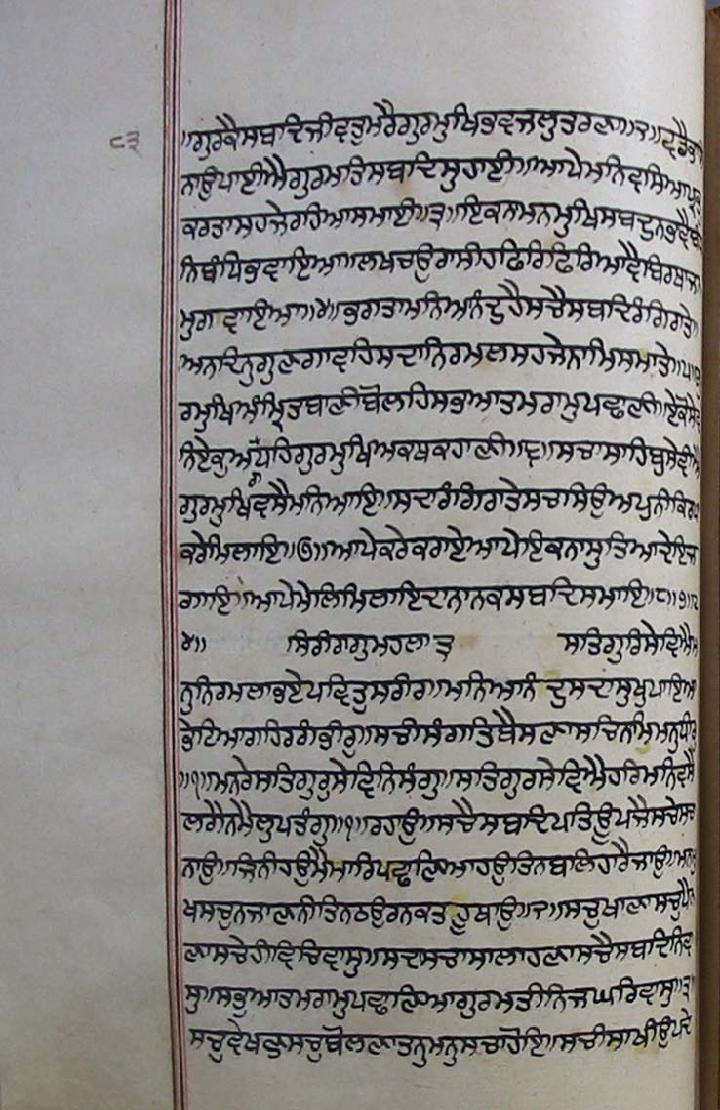 ੮੩
॥ਗੁਰਕੈਸਬਦਿਜੀਵਤੁਮਰੈਗੁਰਮੁਖਿਭਵਜਲੁਤਰਣਾ॥੨॥ਵਡੈਭਾ
ਨਾਉਪਾਈਐਗੁਰਮਤਿਸਬਦਿਸੁਹਾਈ॥ਆਪੇਮਨਿਵਸਿਆਪ੍ਰਭੁ
ਕਰਤਾਸਹਜੇਰਹਿਆਸਮਾਈ॥੩॥ਇਕਨਾਮਨਮੁਖਿਸਬਦੁਨਭਾਵੈਬੰ
ਨਿਬੰਧਿਭਵਾਇਆ॥ਲਖਚਉਰਾਸੀਹਫਿਰਿਫਿਰਿਆਵੈਬਿਰਥਾਜਨ
ਮੁਗਵਾਇਆ॥੪॥ਭਗਤਾਮਨਿਅਨੰਦੁਹੈਸਚੈਸਬਦਿਰੰਗਿਰਾਤੇ॥
ਅਨਦਿਨੁਗੁਣਗਾਵਹਿਸਦਾਨਿਰਮਲਸਹਜੇਨਾਮਿਸਮਾਤੇ॥੫॥ਗੁ
ਰਮੁਖਿਅੰਮ੍ਰਿਤਬਾਣੀਬੋਲਹਿਸਭਆਤਮਰਾਮੁਪਛਾਣੀ॥ਏਕੋਸੇਵ
ਨਿਏਕੁਅਰਾਧਹਿਗੁਰਮੁਖਿਅਕਥਕਹਾਣੀ॥੬॥ਸਚਾਸਾਹਿਬੁਸੇਵੀਐ
ਗੁਰਮੁਖਿਵਸੈਮਨਿਆਇ॥ਸਦਾਰੰਗਿਰਾਤੇਸਚਸਿਉਅਪੁਨੀਕਿਰਪਾ
ਕਰੇਮਿਲਾਇ॥੭॥ਆਪੇਕਰੇਕਰਾਏਆਪੇਇਕਨਾਸੁਤਿਆਦੇਇਜ
ਗਾਇ॥ਆਪੇਮੇਲਿਮਿਲਾਇਦਾਨਾਨਕਸਬਦਿਸਮਾਇ॥੮॥੭॥੨
੪॥ ਸਿਰੀਰਾਗੁਮਹਲਾ੩ ਸਤਿਗੁਰਿਸੇਵਿਐਮ
ਨੁਨਿਰਮਲਾਭਏਪਵਿਤੁਸਰੀਰ॥ਮਨਿਆਨੰਦੁਸਦਾਸੁਖੁਪਾਇਆ
ਭੇਟਿਆਗਹਿਰਗੰਭੀਰੁ॥ਸਚੀਸੰਗਤਿਬੈਸਣਾਸਚਿਨਾਮਿਮਨੁਧੀਰ
॥੧॥ਮਨਰੇਸਤਿਗੁਰੁਸੇਵਿਨਿਸੰਗੁ॥ਸਤਿਗੁਰੁਸੇਵਿਐਹਰਿਮਨਿਵਸੈ
ਲਗੈਨਮੈਲੁਪਤੰਗੁ॥੧॥ਰਹਾਉ॥ਸਚੈਸਬਦਿਪਤਿਊਪਜੈਸਚੇਸਚਾ
ਨਾਉ॥ਜਿਨੀਹਉਮੈਮਾਰਿਪਛਾਣਿਆਹਉਤਿਨਬਲਿਹਾਰੈਜਾਉ॥ਮਨਮੁ
ਖਸਚੁਨਜਾਣਨੀਤਿਨਠਉਰਨਕਤਹੂਥਾਉ॥੨॥ਸਚੁਖਾਣਾਸਚੁਪੈਨ
ਣਾਸਚੇਹੀਵਿਚਿਵਾਸੁ॥ਸਦਾਸਚਾਸਾਲਾਹਣਾਸਚੈਸਬਦਿਨਿਵਾ
ਸੁ॥ਸਭੁਆਤਮਰਾਮੁਪਛਾਣਿਆਗੁਰਮਤੀਨਿਜਘਰਿਵਾਸੁ॥੩॥
ਸਚੁਵੇਖਣੁਸਚੁਬੋਲਣਾਤਨੁਮਨੁਸਚਾਹੋਇ॥ਸਚੀਸਾਖੀਉਪਦੇ